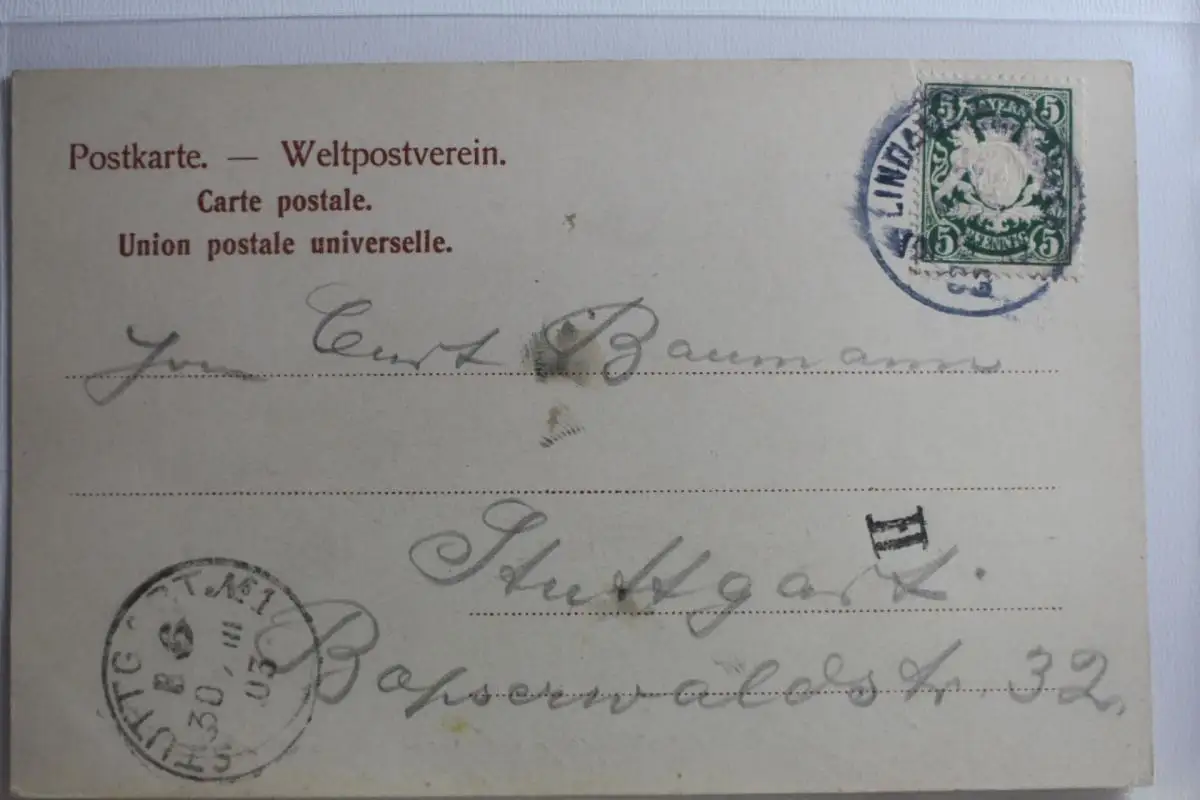 Postkarte. — Weltpostverein.
Carte postale.
Union postale universelle.
5 BAYERN 5
5 PFENNIG 5
LINDAU
Herrn Curt Baumann
Stuttgart.
Bopserwaldstr. 32.
H
STUTTGART. No 1
30 III
03